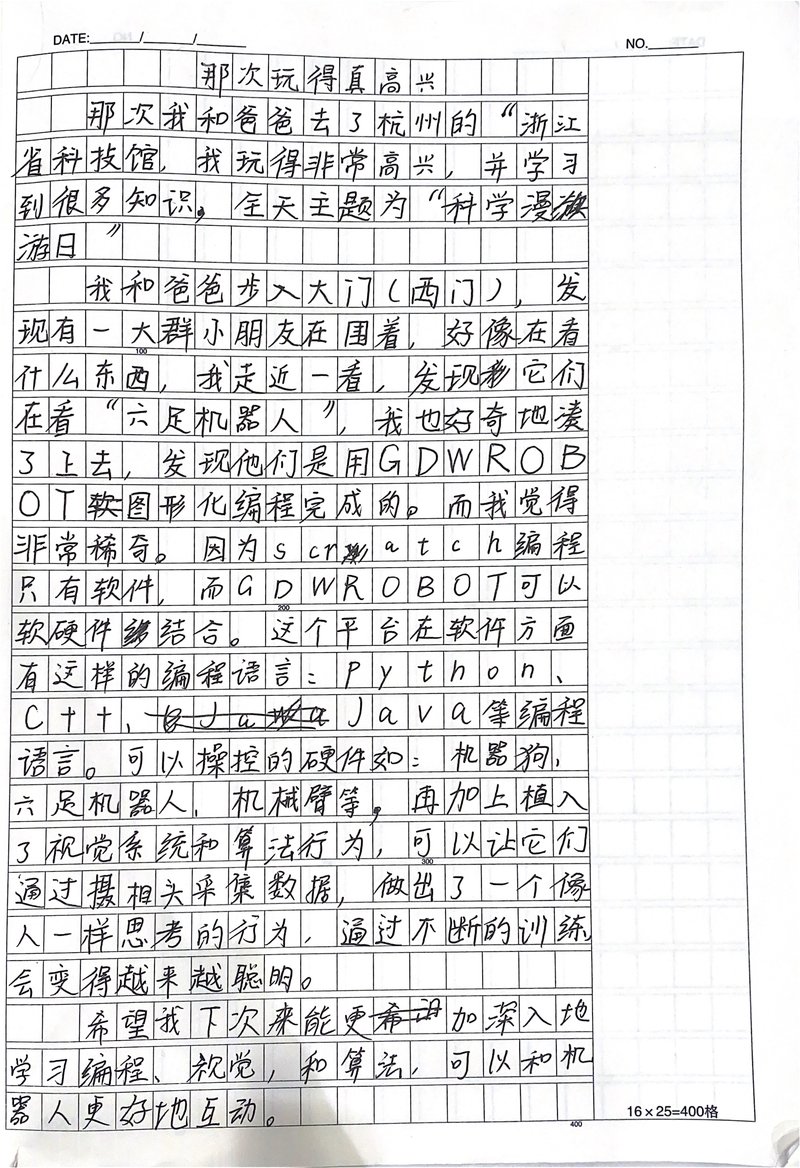 DATE:____/____/____
NO.____
那次玩得真高兴
那次我和爸爸去了杭州的“浙江
省科技馆，我玩得非常高兴，并学习
到很多知识，全天主题为“科学漫
游日”
我和爸爸步入大门(西门)，发
现有一大群小朋友在围着，好像在看
100
什么东西，我走近一看，发现它们
在看“六足机器人”，我也好奇地凑
了上去，发现他们是用GDWROB
OT图形化编程完成的。而我觉得
非常稀奇。因为scratch编程
只有软件，而GDWROBOT可以
200
软硬件结合。这个平台在软件方面
有这样的编程语言：Python、
C++、Java等编程
语言。可以操控的硬件如：机器狗，
六足机器人，机械臂等，再加上植入
了视觉系统和算法行为，可以让它们
300
通过摄相头采集数据，做出了一个像
人一样思考的行为，通过不断的训练，
会变得越来越聪明。
希望我下次来能更加深入地
学习编程、视觉，和算法，可以和机
器人更好地互动。
16×25=400格
400